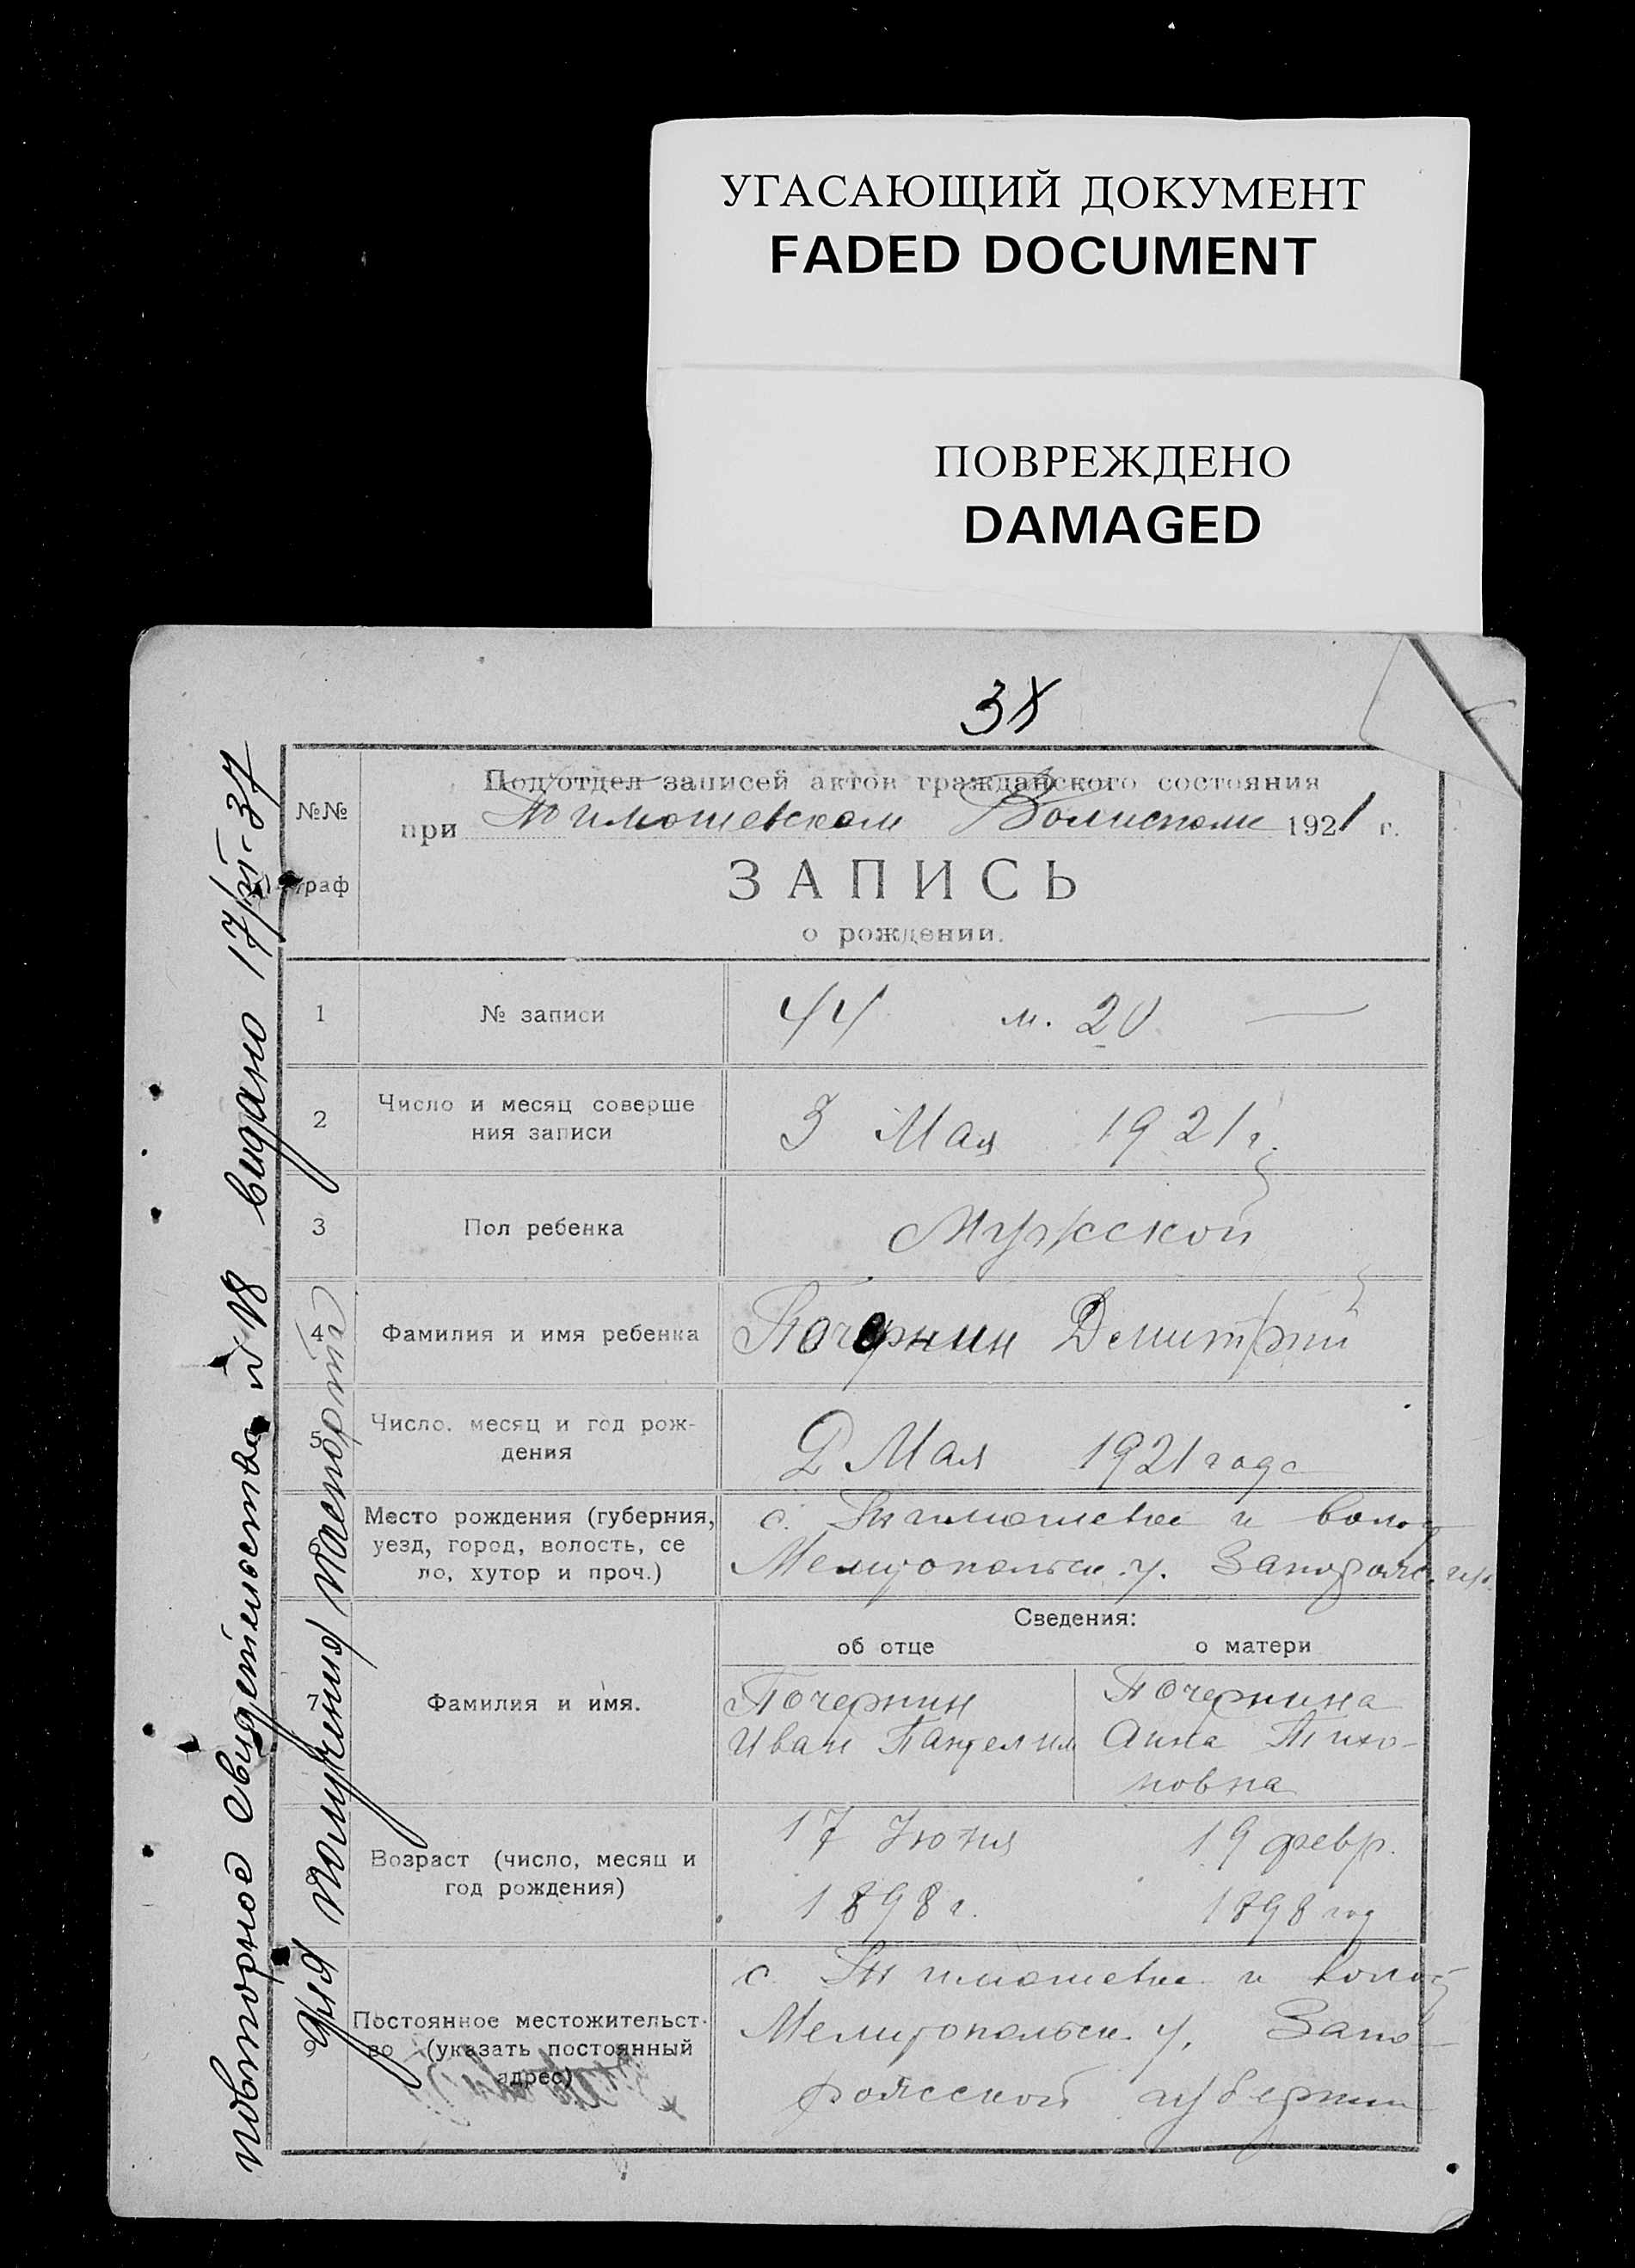 УГАСАЮЩИЙ ДОКУМЕНТ
FADED DOCUMENT
ПОВРЕЖДЕНО
DAMAGED
№№
граф
Подотдел записей актов гражданского состояния
при Тимошевском Волисполк 1921 г.
ЗАПИСЬ
о рождении.
1 № записи 44 м. 20 —
2 Число и месяц соверше
ния записи 3 Мая 1921 г.
3 Пол ребенка Мужской
4 Фамилия и имя ребенка Почернин Демитрий
5 Число, месяц и год рож-
дения 2 Мая 1921 года
Место рождения (губерния,
уезд, город, волость, се
ло, хутор и проч.)
с. Тимошевке и волост
Мелитопольск. у. Запорожс. губ.
Сведения:
об отце о матери
7 Фамилия и имя.
Почернин
Иван Пантелим
Почернина
Анна Тихо-
новна
Возраст (число, месяц и
год рождения)
17 Июня
1898 г.
19 февр.
1898 год
9 Постоянное местожительст-
во (указать постоянный
адрес)
с. Тимошевке и волост
Мелитопольск. у. Запо-
рожской губернии
повторное свидетельство № видано 17/VI-37
Для получения паспорта